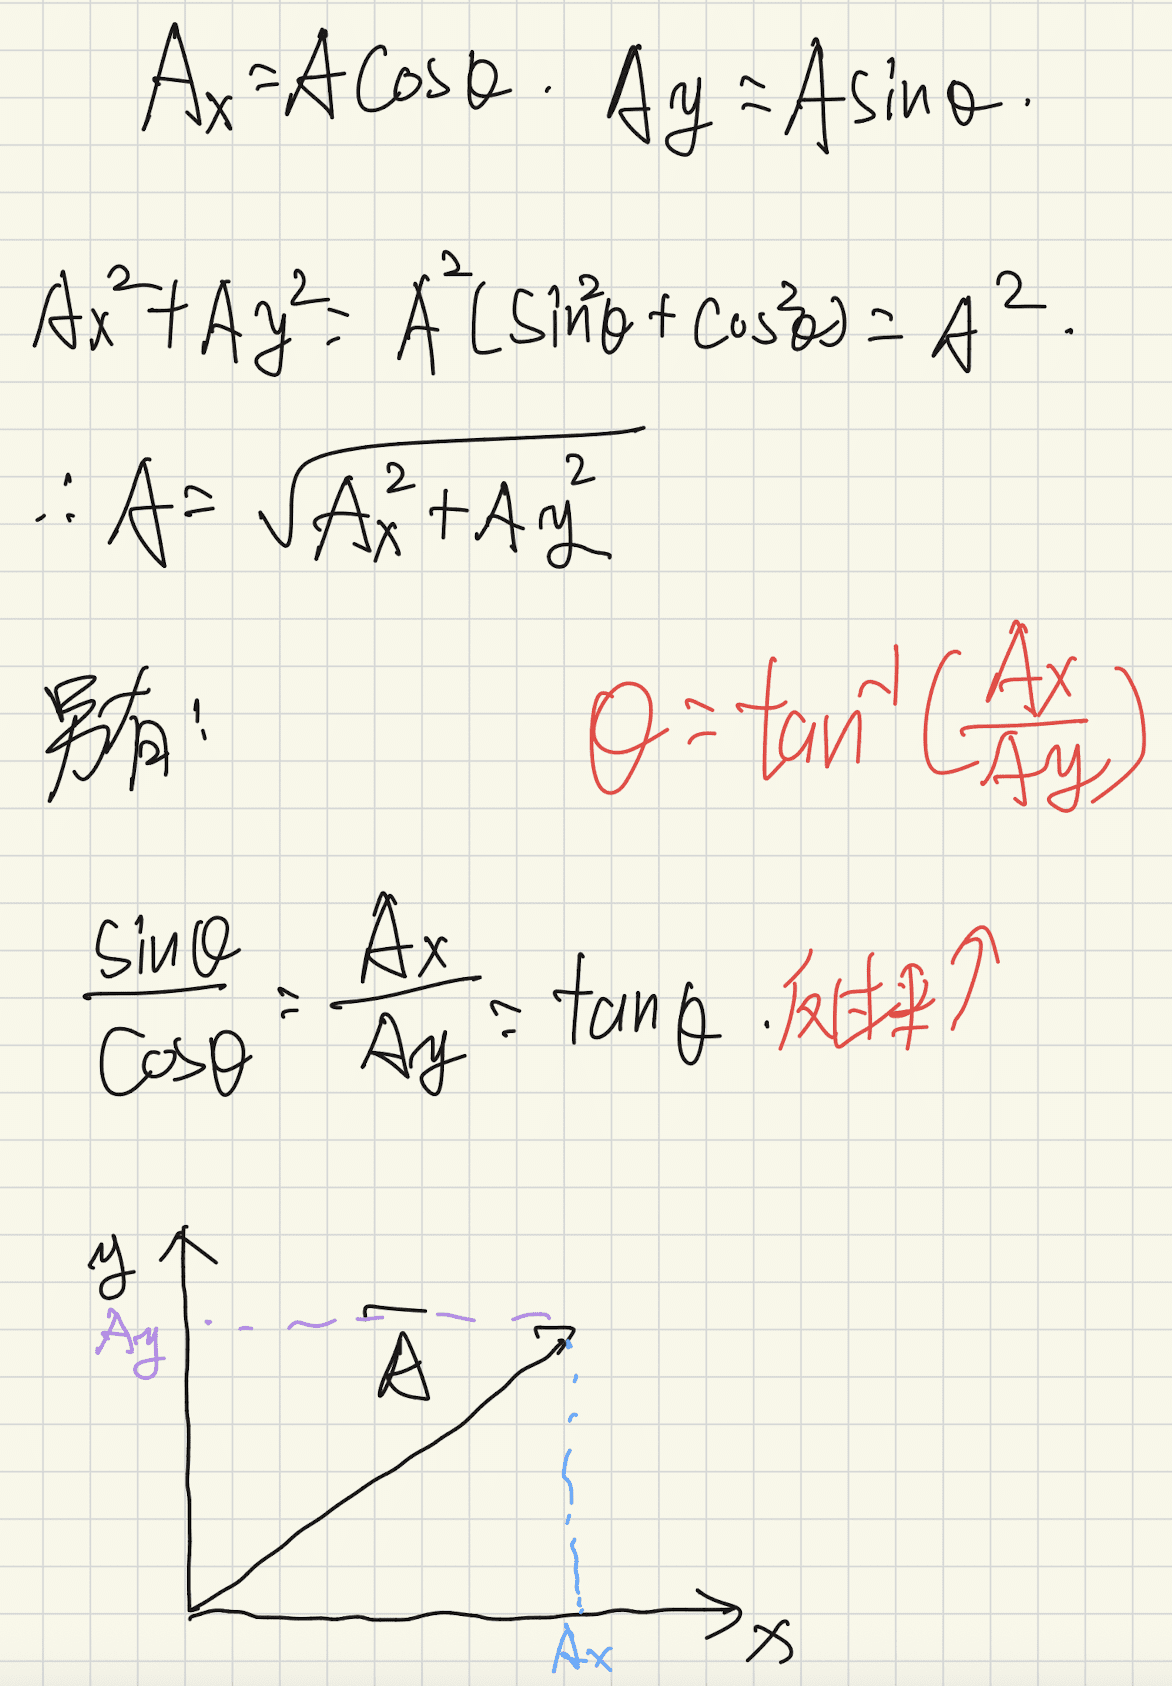 Ax = A cosθ. Ay = A sinθ.
Ax² + Ay² = A² (sin²θ + cos²θ) = A².
∴ A = √(Ax² + Ay²)
另有:
θ = tan⁻¹(Ax/Ay)
sinθ/cosθ = Ax/Ay = tanθ.
y
Ay
A
Ax
x